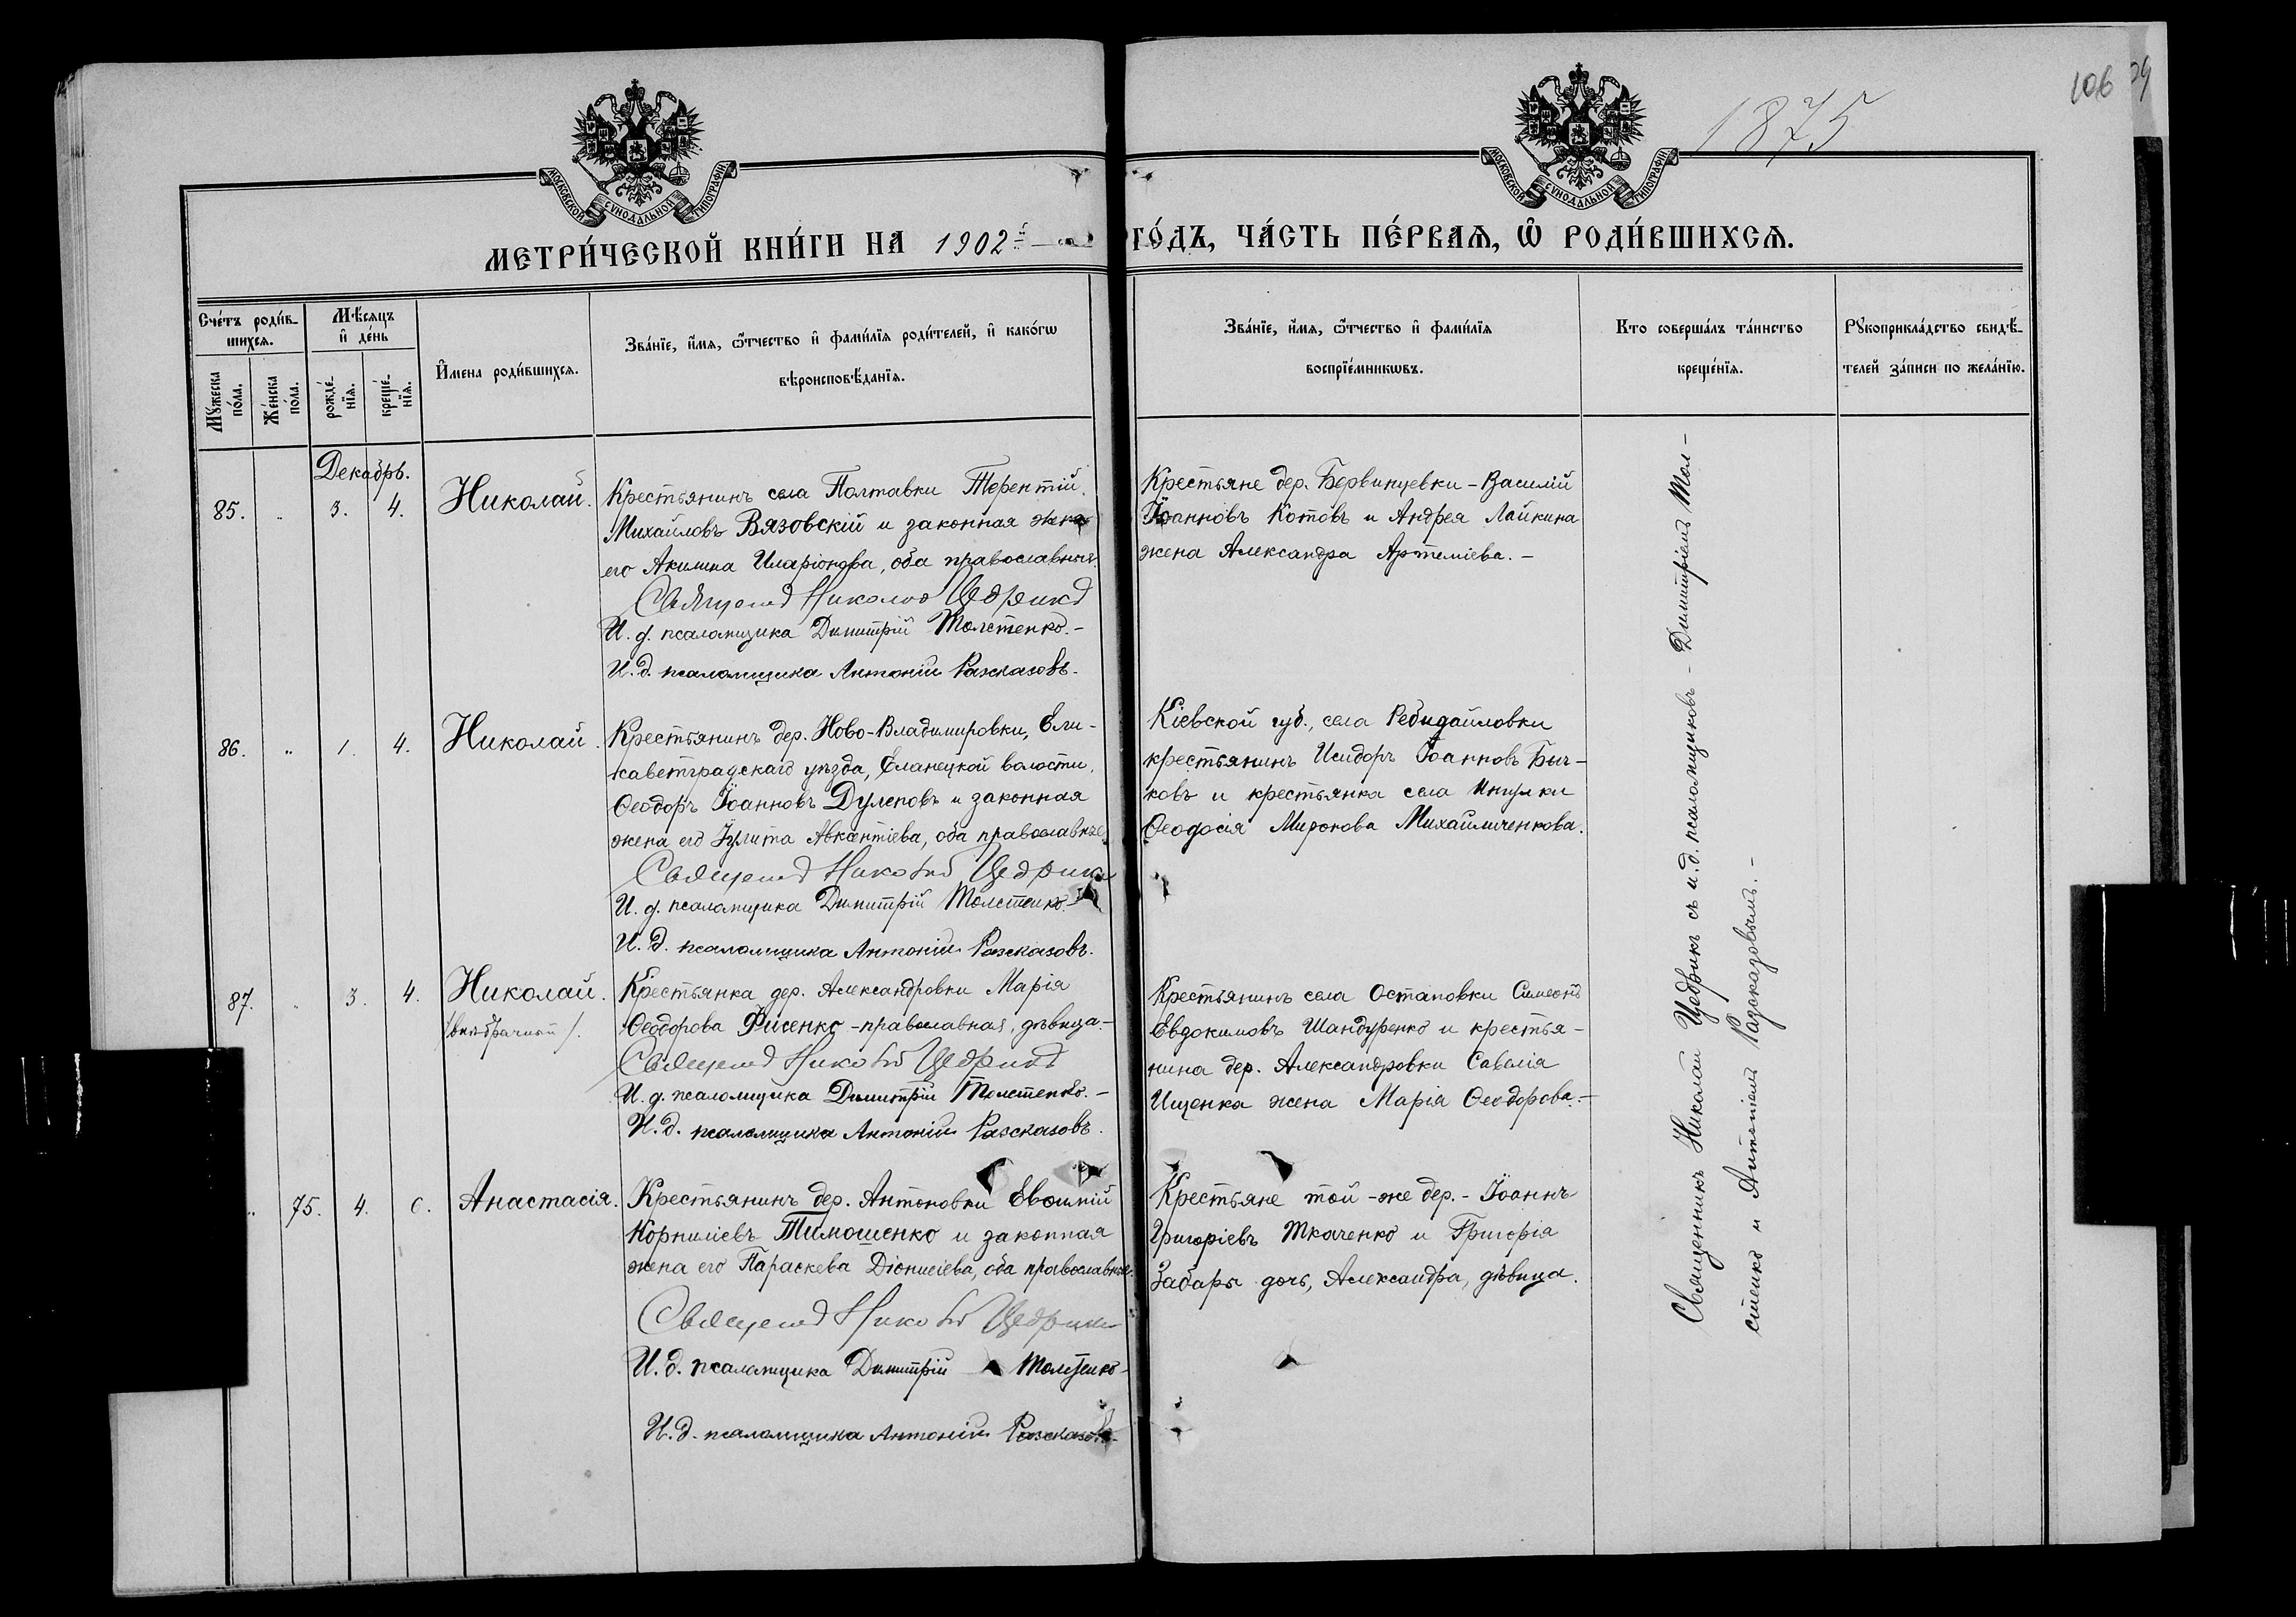 106
1875
МОСКОВСКОЙ СѴНОДАЛЬНОЙ ТИПОГРАФІИ
МОСКОВСКОЙ СѴНОДАЛЬНОЙ ТИПОГРАФІИ
МЕТРИ́ЧЕСКОЙ КНИ́ГИ НА 1902й ГО́ДЪ, ЧА́СТЬ ПЕ́РВАЯ, Ѡ РОДИ́ВШИХСЯ.
Сче́тъ роди́в-
шихся.
Мꙋ́жеска
по́ла.
Же́нска
по́ла.
Мѣ́сяцъ
и де́нь
рожде́-
нїя.
креще́-
нїя.
Имена роди́вшихся.
Зва́нїе, и́мя, ѻ́тчество и фами́лїя роди́телей, и како́гѡ
вѣроисповѣ́данїя.
Зва́нїе, и́мя, ѻ́тчество и фами́лїя
воспрїе́мникѡвъ.
Кто совершáлъ та́инство
креще́нїя.
Рꙋкоприкла́дство свидѣ́-
телей за́писи по жела́нїю.
Декабрь.
85. " 3. 4. Николай.
Крестьянинъ села Полтавки Терентій
Михайловъ Вязовскій и законная жена
его Акилина Иларіонова, оба православные.
Священ Николай Цедрикъ
И. д. псаломщика Димитрій Толстенко.-
И. д. псаломщика Антоній Разсказовъ.
Крестьяне дер. Бервинцевки - Василій
Іоанновъ Котовъ и Андрея Лайкина
жена Александра Артеміева.-
86. " 1. 4. Николай.
Крестьянинъ дер. Ново-Владимировки, Ели-
саветградскаго уѣзда, Еланецкой волости,
Ѳеодоръ Іоанновъ Дулеповъ и законная
жена его Іулита Авксентіева, оба православные
Священ Николай Цедрикъ
И. д. псаломщика Димитрій Толстенко.
И. д. псаломщика Антоній Разсказовъ.
Кіевской губ., села
крестьянинъ Исидоръ Іоанновъ Быч-
ковъ и крестьянка села Ингулки
Ѳеодосія Миронова Михайличенкова.
87. " 3. 4. Николай.
/внѣбрачный/.
Крестьянка дер. Александровки Марія
Ѳеодорова Фисенко - православная, дѣвица.-
Священ Николай Цедрикъ
И. д. псаломщика Димитрій Толстенко.-
И. д. псаломщика Антоній Разсказовъ.
Крестьянинъ села Остаповки Симеонъ
Евдокимовъ Шандуренко и крестья-
нина дер. Александровки Савелія
Ищенка жена Марія Ѳеодорова.-
" 75. 4. Анастасія.
Крестьянинъ дер. Антоновки Евѳимій
Корниліевъ Тимошенко и законная
жена его Параскева Діонисіева, оба православные.
Священ Николай Цедрикъ
И. д. псаломщика Димитрій Толстенко-
И. д. псаломщика Антоній Разсказовъ
Крестьяне той-же дер.- Іоаннъ
Григоріевъ Ткаченко и Григорія
Забары дочь, Александра, дѣвица.
Священникъ Николай Цедрикъ съ и. д. псаломщиковъ - Димитріемъ Тол-
стенко и Антоніемъ Разсказовымъ.-